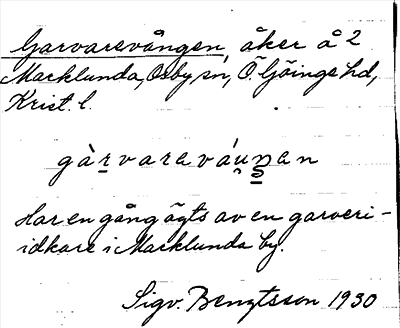 Garvarevången, åker å 2
Macklunda, Osby sn, Ö. Göinge hd,
Krist. l.
gàrvarəváu̯ŋən
Har en gång ägts av en garveri-
idkare i Macklunda by.
Sigv. Bengtsson 1930